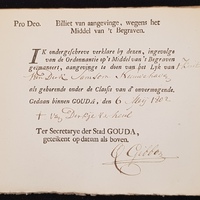 Pro Deo. Billiet van aangevinge, wegens het
Middel van 't Begraven.
IK ondergeschreve verklare by dezen, ingevolge
van de Ordonnantie op 't Middel van 't Begraven
geëmaneert, aangevinge te doen van het Lyk van
Van Dirk
als gehorende onder de Classis van d'onvermogende.
Gedaan binnen GOUDA, den 6 Mey 1802
Ter Secretarye der Stad GOUDA,
geteikent op datum als boven.